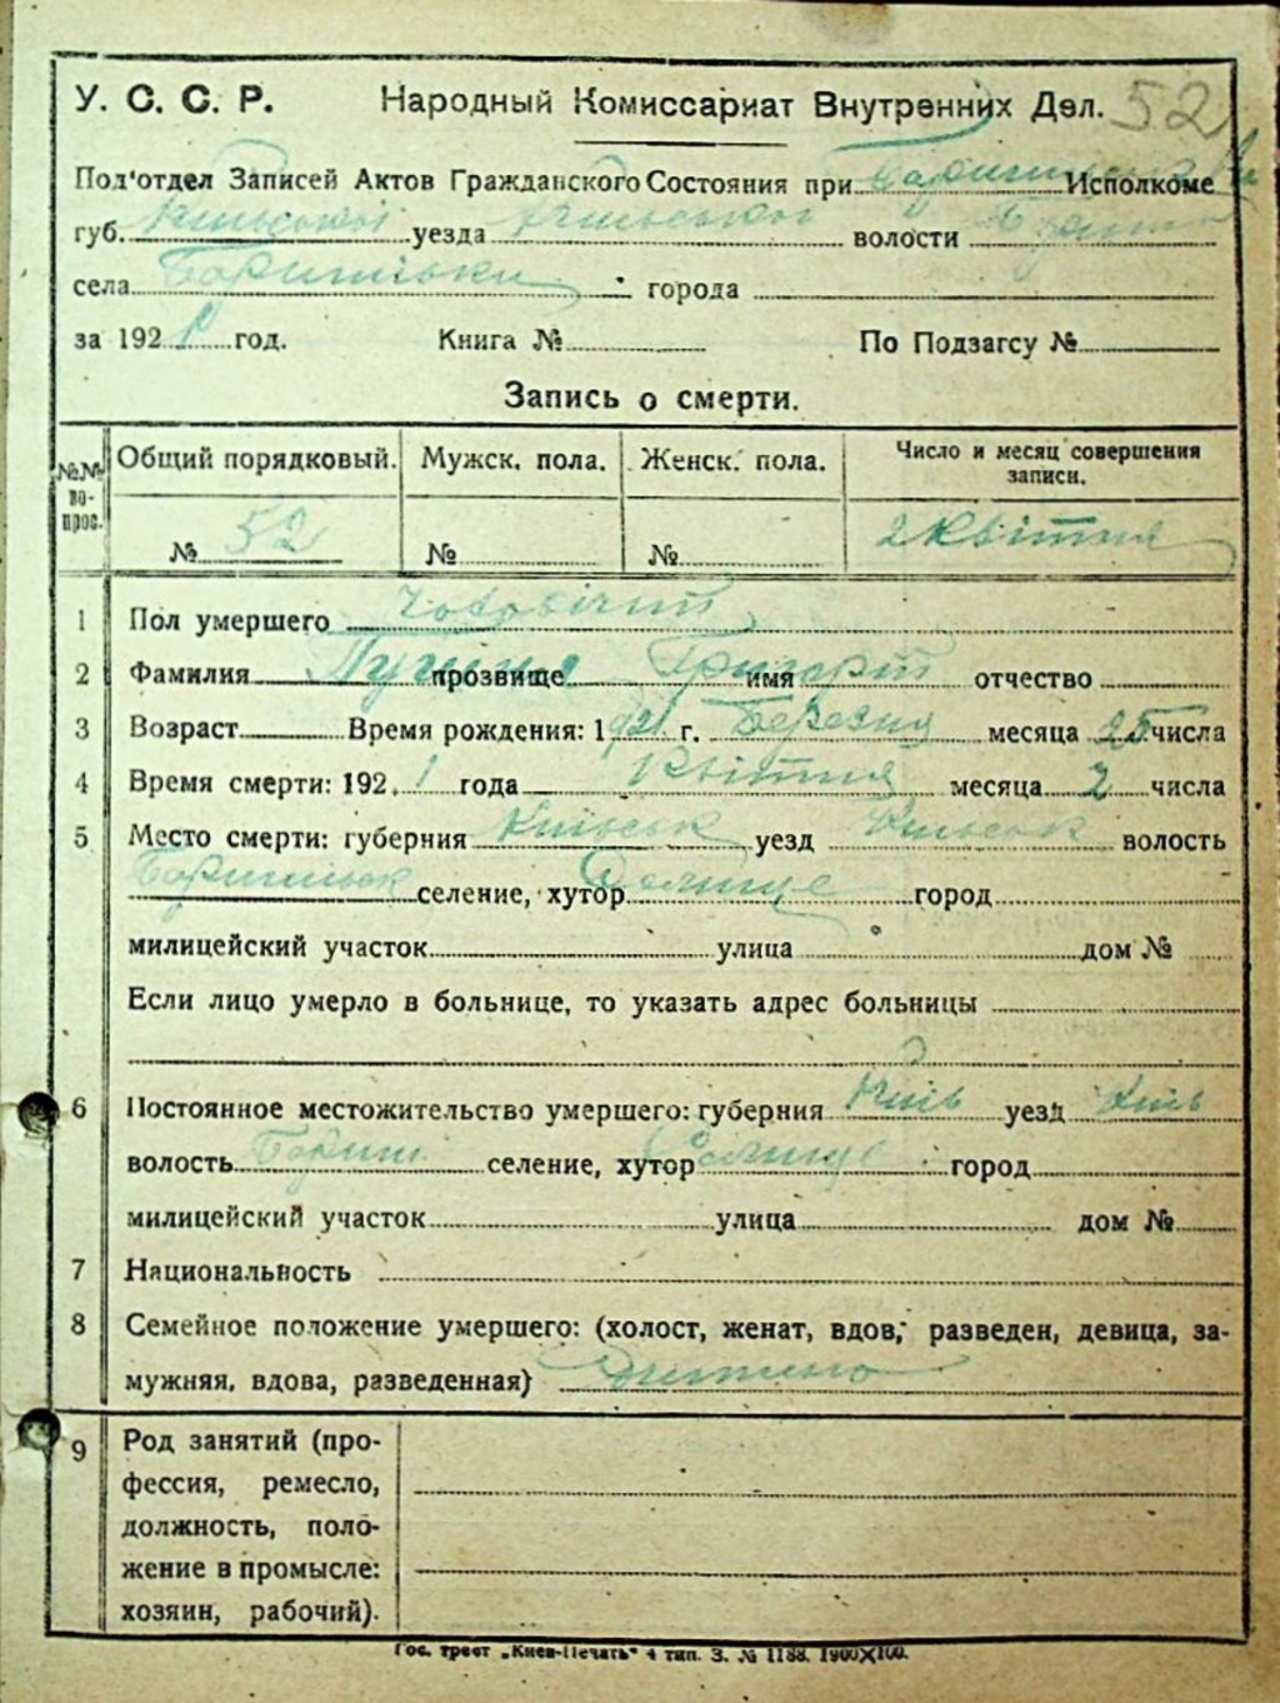 У. С. С. Р. Народный Комиссариат Внутренних Дел. 52
Под'отдел Записей Актов Гражданского Состояния при Исполкоме
губ. Київської уезда Київської волости
села города
за 1921 год. Книга № По Подзагсу №
Запись о смерти.
№№ во- прос. Общий порядковый. Мужск. пола. Женск. пола. Число и месяц совершения записи.
№ 52 № № 2 Квітня
1 Пол умершего Чоловічий
2 Фамилия прозвище имя Григорій отчество
3 Возраст Время рождения: 1921 г. Березня месяца 25 числа
4 Время смерти: 192.1 года Квітня месяца 2 числа
5 Место смерти: губерния Київськ уезд Київськ волость
селение, хутор город
милицейский участок улица дом №
Если лицо умерло в больнице, то указать адрес больницы
6 Постоянное местожительство умершего: губерния Київ уезд Київ
волость селение, хутор город
милицейский участок улица дом №
7 Национальность
8 Семейное положение умершего: (холост, женат, вдов, разведен, девица, за-
мужняя, вдова, разведенная) Дитина
9 Род занятий (про-
фессия, ремесло,
должность, поло-
жение в промысле:
хозяин, рабочий).
Гос. трест „Киев-Печать“ 4 тип. З. № 1188. 1900X100.